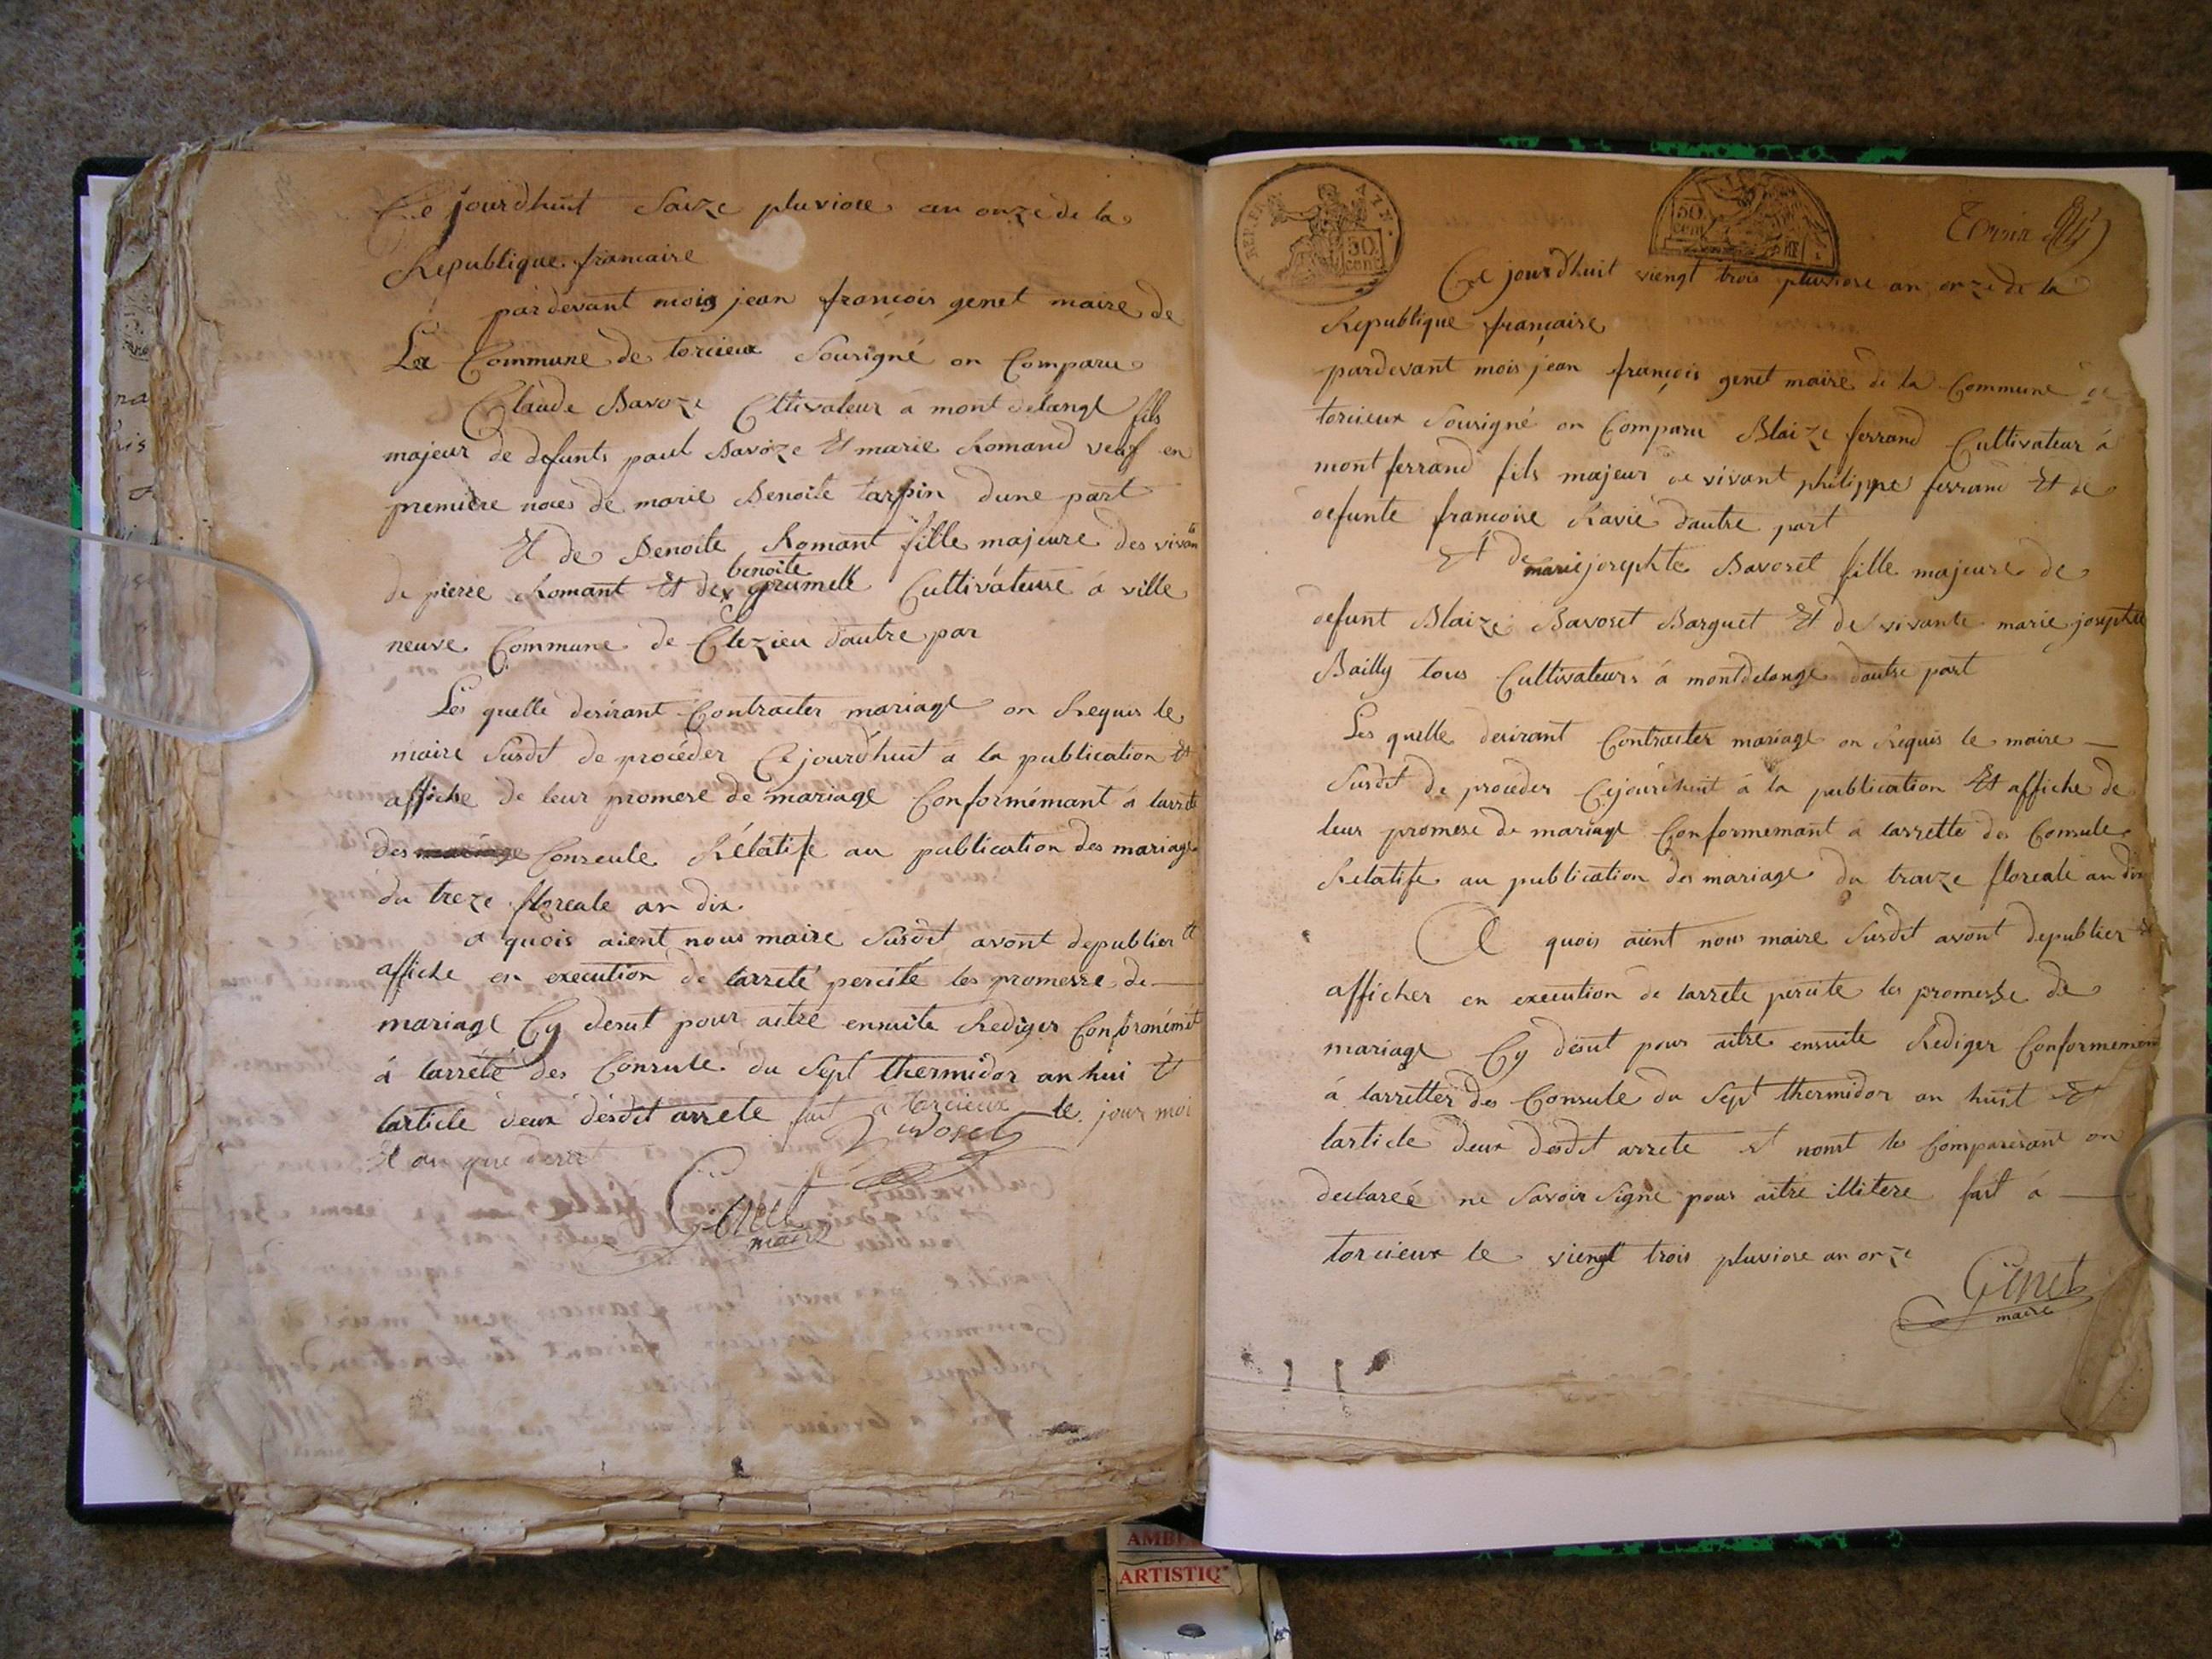 Ce jourdhuit Saize pluviose an onze de la
Republique francaise
pardevant mois jean francois genet maire de
La Commune de torcieux Sousigné on Comparu
Claude Bavoze Cltivateur a mont delange fils
majeur de defunts paul Bavoze Et marie Romand veuf en
premiere noces de marie Benoite tarpin dune part
Et de Benoite Romant fille majeure des vivants
benoite
de pierre Romant Et de grumelle Cultivateure a ville
neuve Commune de Clezieu dautre par
Les quelle desirant Contracter mariage on Requis le
maire Susdt de procéder Cejourdhuit a la publication Et
affiche de leur promese de mariage Conformémant a larrete
des Conseule Rélatife au publication des mariage
du treze floreale an dix
a quois aient nous maire Susdt avont depublier Et
affiche en execution de larreté percité les promesse de
mariage Cy desut pour aitre ensuite Rediger
á larrété des Consule du Sept thermidor an hui Et
larticle deux désdt arrete fait a torcieux le jour moi
Et an que desut
Genet
maire
REP. FRA
50
cent
50
cent
Ce jourdhuit viengt trois pluviose an onze de la
Republique française
pardevant mois jean françois genet maire de la Commune de
torcieux Sousigné on Comparu Blaize ferrand Cultivateur á
mont ferrand fils majeur de vivant philippe ferrand Et de
defunte francoise Ravié dautre part
Et de marie josephte Bavoset fille majeure de
defunt Blaize Bavoset Barguet Et de vivante marie josephte
Bailly tous Cultivateurs á montdelange dautre part
Les quelle desirant Contracter mariage on Requis le maire
Susdt de procéder Cejourdhuit á la publication Et affiche de
leur promese de mariage Conformemant a larrette des Consule
Relatife au publication des mariage du traize floreale an dix
A quois aient nous maire Susdt avont depublier Et
afficher en execution de larrete percite les promesse de
mariage Cy desut pour aitre ensuite Rediger Conformement
á larretter des Consule du Sept thermidor an huit Et
larticle deux desdt arrete et nomt les Comparesant on
declareé ne Savoir Signe pour aitre illitere fait á
torcieux le viengt trois pluviose an onze
Genet
maire
ARTISTIQ